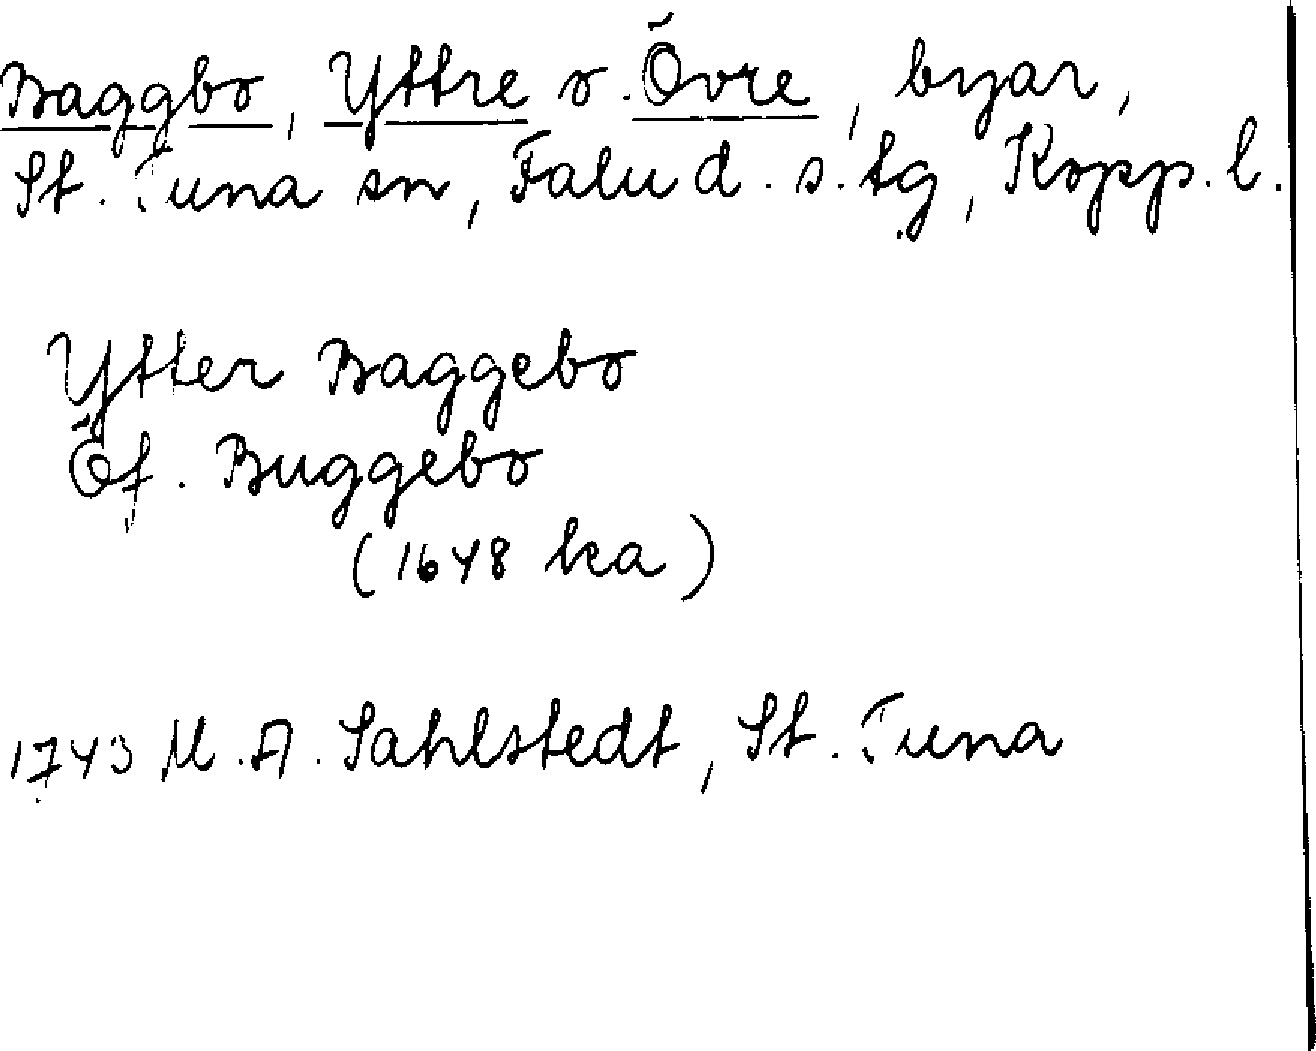 Baggbo, Yttre o. Övre, byar,
St. Tuna sn, Falu d. s. tg, Kopp. l.
Ytter Baggebo
Öf. Buggebo
(1648 ka)
1743 M. A. Sahlstedt, St. Tuna